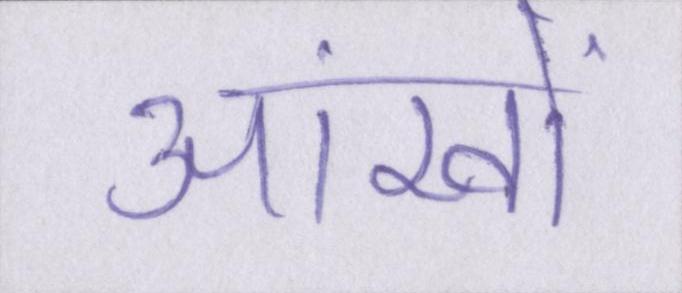 आंखों